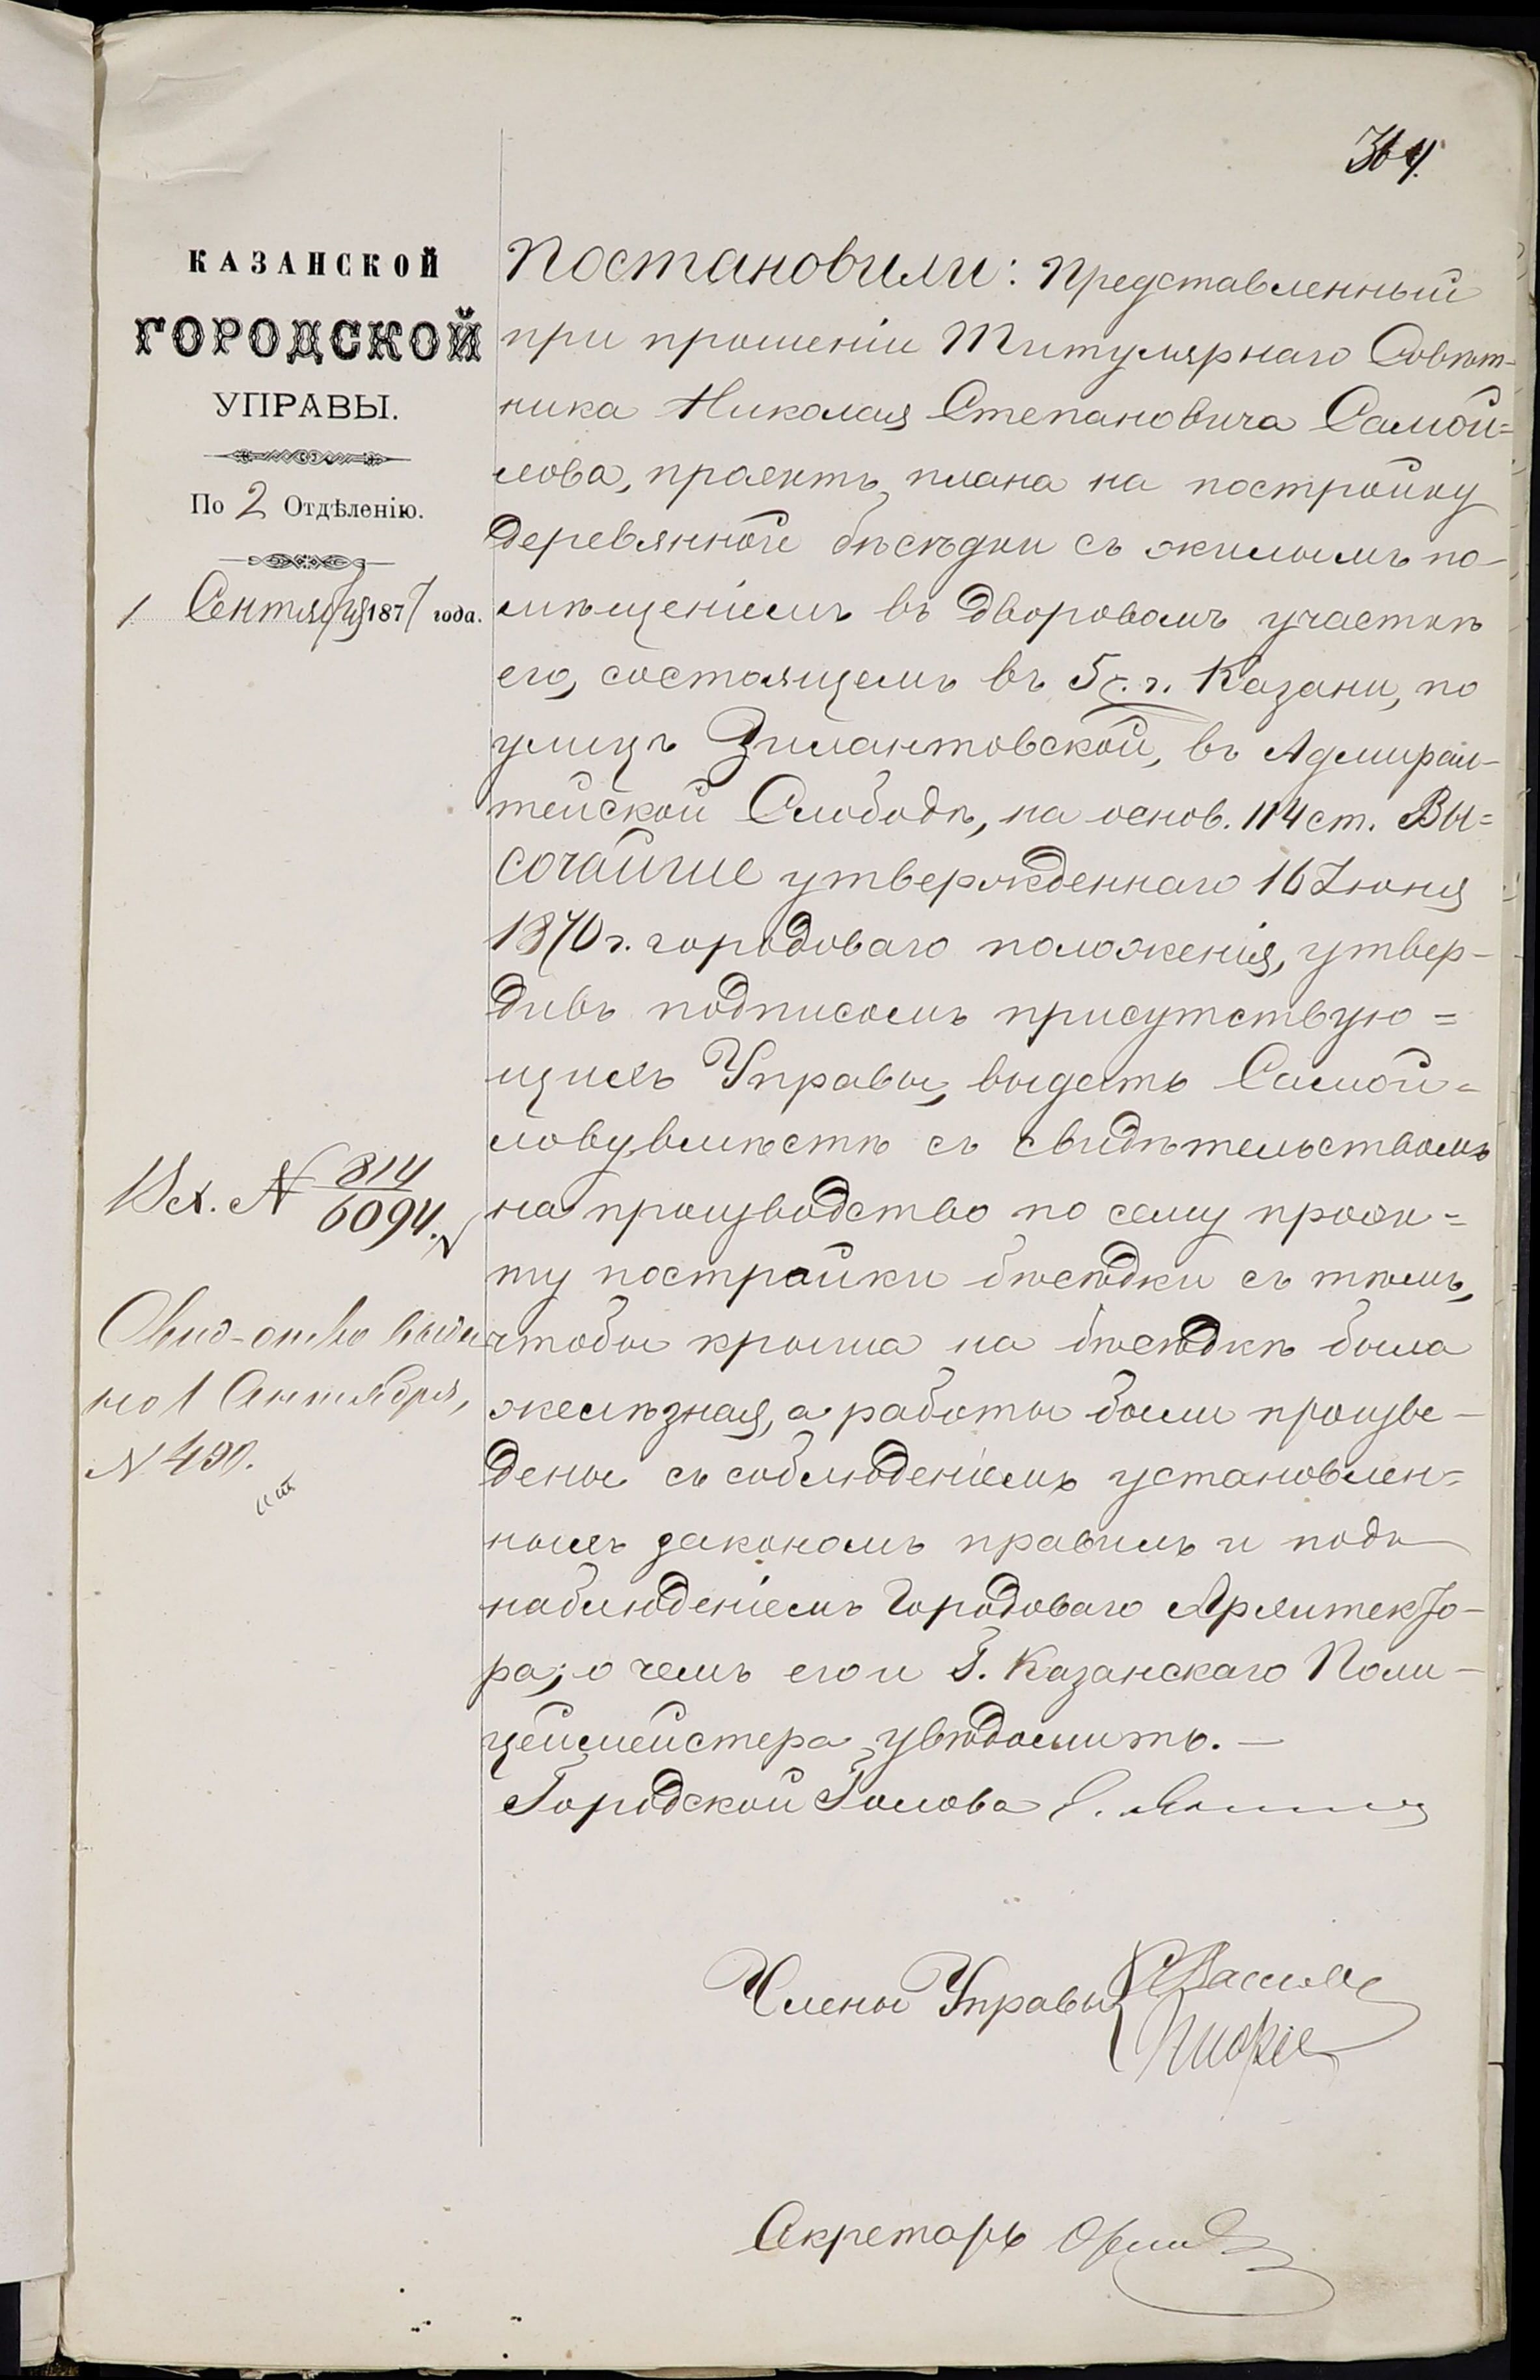 364.
КАЗАНСКОЙ
ГОРОДСКОЙ
УПРАВЫ.
По 2 Отдѣленію.
1 Сентября 1877 года.
Постановили: Представленный
при прошеніи Титулярнаго Совѣт-
ника Николая Степановича Самой=
лова, проектъ плана на постройку
деревянной бѣсѣдки съ жилымъ по-
мѣщеніемъ въ дворовомъ участкѣ
его, состоящемъ въ 5 ч. г. Казани, по
улицѣ Зилантовской, въ Адмирал-
тейской Слободѣ, на основ. 114 ст. Вы=
сочайше утвержденнаго 16 Іюня
1870 г. городоваго положенія, утвер-
дивъ подписомъ присутствую=
щихъ Управы, выдать Самой=
лову, вмѣстѣ съ свидѣтельствомъ
на производство по сему проэк=
ту постройки бѣсѣдки съ тѣмъ,
чтобы крыша на бѣсѣдкѣ была
желѣзная, а работы были произве-
дены съ соблюденіемъ установлен=
ныхъ закономъ правилъ и подъ
наблюденіемъ Городоваго Архитекто-
ра; о чемъ его и Г. Казанскаго Поли-
цеймейстера увѣдомить. —
Городской Голова
Исх. № 814
6094.
Свид-ство выда
но 1 Сентября,
№ 490.
Члены Управы
Секретарь